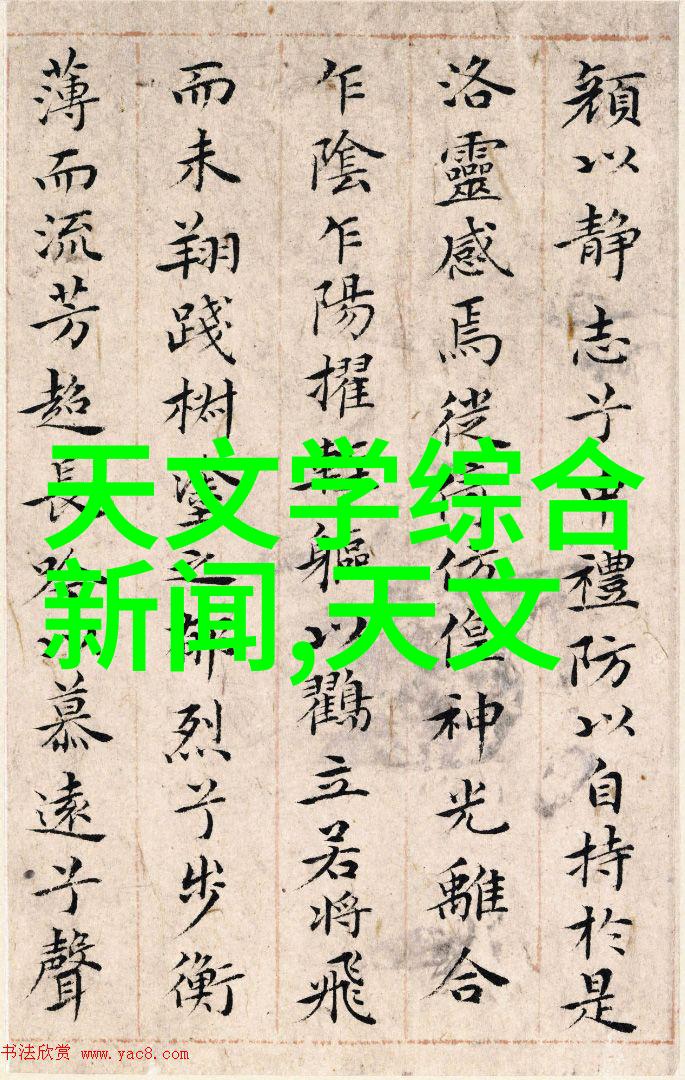 顔以静志兮申禮防以自持於是
洛靈感焉從倚仿偟神光離合
乍陰乍陽擢輕軀以鸖立若將飛
而未翔踐椒塗之郁烈兮步衡
薄而流芳超長吟以慕遠兮聲
天文学综合
新闻,天文
书法欣赏 www.yac8.com